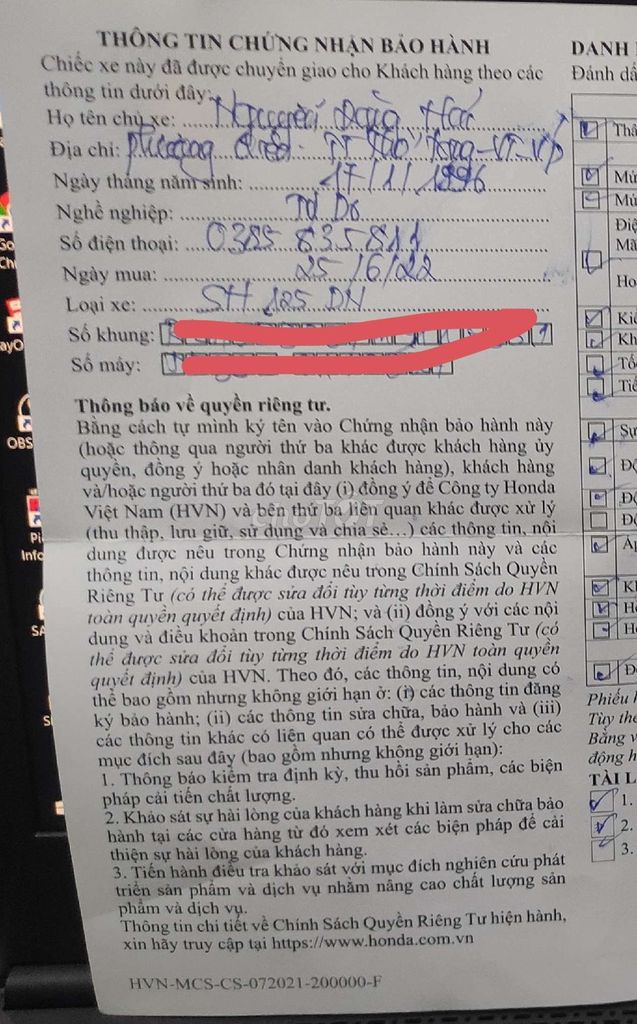 THÔNG TIN CHỨNG NHẬN BẢO HÀNH
Chiếc xe này đã được chuyển giao cho Khách hàng theo các
thông tin dưới đây:
Họ tên chủ xe:
Địa chỉ:
Ngày tháng năm sinh: 17/1/1996
Nghề nghiệp: Tự Do
Số điện thoại: 0385 835811
Ngày mua: 25/6/22
Loại xe: SH 125 DN
Số khung:
Số máy:
Thông báo về quyền riêng tư.
Bằng cách tự mình ký tên vào Chứng nhận bảo hành này
(hoặc thông qua người thứ ba khác được khách hàng ủy
quyền, đồng ý hoặc nhân danh khách hàng), khách hàng
và/hoặc người thứ ba đó tại đây (i) đồng ý để Công ty Honda
Việt Nam (HVN) và bên thứ ba liên quan khác được xử lý
(thu thập, lưu giữ, sử dụng và chia sẻ…) các thông tin, nội
dung được nêu trong Chứng nhận bảo hành này và các
thông tin, nội dung khác được nêu trong Chính Sách Quyền
Riêng Tư (có thể được sửa đổi tùy từng thời điểm do HVN
toàn quyền quyết định) của HVN; và (ii) đồng ý với các nội
dung và điều khoản trong Chính Sách Quyền Riêng Tư (có
thể được sửa đổi tùy từng thời điểm do HVN toàn quyền
quyết định) của HVN. Theo đó, các thông tin, nội dung có
thể bao gồm nhưng không giới hạn ở: (i) các thông tin đăng
ký bảo hành; (ii) các thông tin sửa chữa, bảo hành và (iii)
các thông tin khác có liên quan có thể được xử lý cho các
mục đích sau đây (bao gồm nhưng không giới hạn):
1. Thông báo kiểm tra định kỳ, thu hồi sản phẩm, các biện
pháp cải tiến chất lượng.
2. Khảo sát sự hài lòng của khách hàng khi làm sửa chữa bảo
hành tại các cửa hàng từ đó xem xét các biện pháp để cải
thiện sự hài lòng của khách hàng.
3. Tiến hành điều tra khảo sát với mục đích nghiên cứu phát
triển sản phẩm và dịch vụ nhằm nâng cao chất lượng sản
phẩm và dịch vụ.
Thông tin chi tiết về Chính Sách Quyền Riêng Tư hiện hành,
xin hãy truy cập tại https://www.honda.com.vn
HVN-MCS-CS-072021-200000-F
DANH
Đánh dấ
Phiếu
Tùy the
Bằng v
động h
TÀI L
1.
2.
3.
OBS